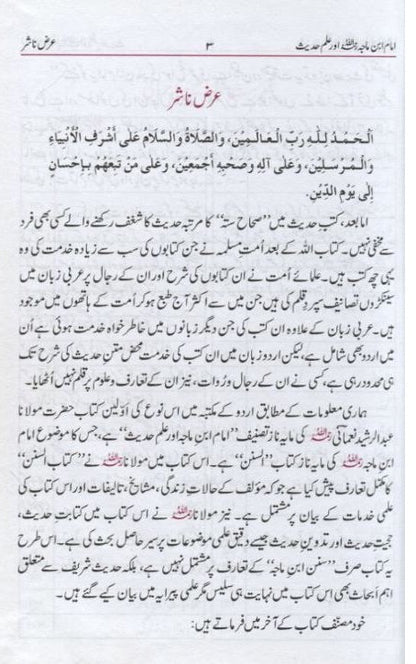 امام ابن ماجہ رحمہ اللہ اور علم حدیث ۳ عرض ناشر
عرض ناشر
اَلْحَمْدُ لِلّٰهِ رَبِّ الْعَالَمِيْنَ، وَالصَّلَاةُ وَالسَّلَامُ عَلٰى أَشْرَفِ الْأَنْبِيَاءِ
وَالْمُرْسَلِيْنَ، وَعَلٰى آلِهٖ وَصَحْبِهٖ أَجْمَعِيْنَ، وَعَلٰى مَنْ تَبِعَهُمْ بِإِحْسَانٍ
إِلٰى يَوْمِ الدِّيْنِ.
اما بعد، کتبِ حدیث میں ”صحاح ستہ“ کا مرتبہ حدیث کا شغف رکھنے والے کسی بھی فرد
سے مخفی نہیں۔ کتاب اللہ کے بعد اُمتِ مسلمہ نے جن کتابوں کی سب سے زیادہ خدمت کی وہ
یہی چھ کتب ہیں۔ علمائے اُمت نے ان کتابوں کی شرح اور ان کے رجال پر عربی زبان میں
سینکڑوں تصانیف سپردِ قلم کی ہیں جن میں سے اکثر آج طبع ہو کر اُمت کے ہاتھوں میں موجود
ہیں۔ عربی زبان کے علاوہ ان کتب کی جن دیگر زبانوں میں خاطر خواہ خدمت ہوئی ہے اُن
میں اردو بھی شامل ہے، لیکن اردو زبان میں ان کتب کی خدمت محض متنِ حدیث کی شرح تک
ہی محدود رہی ہے، کسی نے ان کے رجال ورُوات، نیز ان کے تعارف وعلوم پر قلم نہیں اُٹھایا۔
ہماری معلومات کے مطابق اردو کے مکتبہ میں اس نوع کی اوّلین کتاب حضرت مولانا
عبد الرشید نعمانی رحمہ اللہ کی مایہ ناز تصنیف ”امام ابن ماجہ اور علم حدیث“ ہے، جس کا موضوع امام
ابن ماجہ رحمہ اللہ کی مایہ ناز کتاب ”السنن“ ہے۔ اس کتاب میں مولانا رحمہ اللہ نے ”کتاب السنن“
کا مکمل تعارف پیش کیا ہے جو کہ مؤلف کے حالاتِ زندگی، مشایخ، تالیفات اور اس کتاب کی
علمی خدمات کے بیان پر مشتمل ہے۔ نیز مولانا رحمہ اللہ نے اس کتاب میں کتابتِ حدیث،
حجیتِ حدیث اور تدوینِ حدیث جیسے دقیق علمی موضوعات پر سیر حاصل بحث کی ہے۔ اس طرح
یہ کتاب صرف ”سنن ابن ماجہ“ کے تعارف پر مشتمل نہیں ہے، بلکہ حدیث شریف سے متعلق
اہم اَبحاث بھی اس کتاب میں نہایت ہی سلیس مگر علمی پیرایہ میں بیان کیے گئے ہیں۔
خود مصنّف کتاب کے آخر میں فرماتے ہیں: